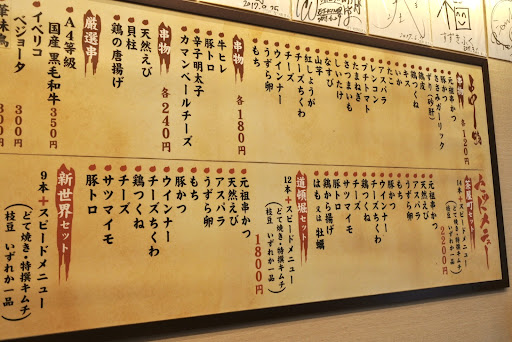 串物 各120円
元祖串かつ
ささみガーリック
ずり(砂肝)
豚かつ
鶏つくね
キス
いか
たこ
アスパラ
レンコン
たまねぎ
さつまいも
しいたけ
なすび
山芋
紅しょうが
チーズちくわ
チーズ
ウインナー
うずら卵
もち
串物 各180円
牛ヒレ
豚トロ
辛子明太子
カマンベールチーズ
串物 各240円
天然えび
貝柱
鶏の唐揚げ
厳選串
A4等級
国産黒毛和牛 350円
イベリコ
ベジョータ 300円
2200円
14本+スピードメニュー
(どて焼き・特撰キムチ
枝豆 いずれか一品)
元祖串かつ
天然えび
アスパラ
うずら卵
もち
豚かつ
ウインナー
チーズちくわ
鶏つくね
チーズ
サツマイモ
豚トロ
鶏から揚げ
はも又は牡蠣
道頓堀セット 1800円
12本+スピードメニュー
(どて焼き・特撰キムチ
枝豆 いずれか一品)
元祖串かつ
天然えび
アスパラ
うずら卵
もち
豚かつ
ウインナー
チーズちくわ
鶏つくね
チーズ
サツマイモ
豚トロ
新世界セット
9本+スピードメニュー
(どて焼き・特撰キムチ
枝豆 いずれか一品)